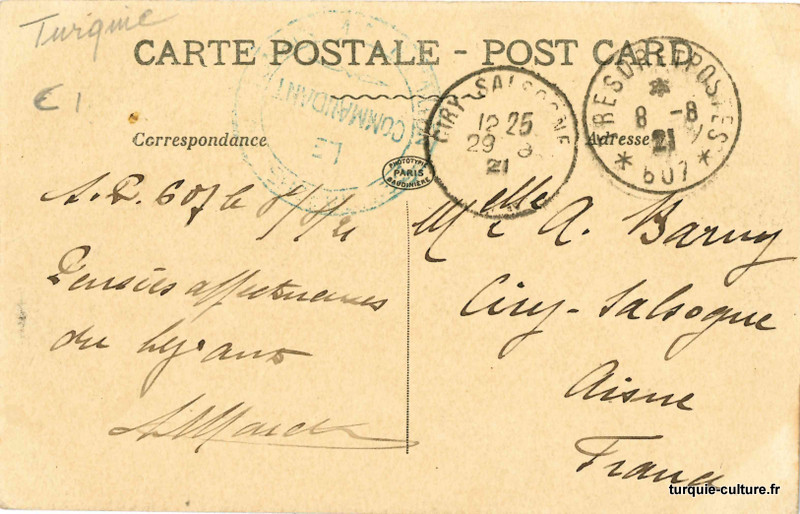 Turquie
€1
CARTE POSTALE - POST CARD
Correspondance
Adresse
LE COMMANDANT
CIRY-SALSOGNE
12 25
29 8
21
TRESOR ET POSTES
8 -8
21
* 607 *
PHOTOTYPIE
PARIS
BAUDINIÈRE
S.P. 607 le 8/8/21
Pensées affectueuses
du
Melle A. Barny
Ciry-Salsogne
Aisne
France
turquie-culture.fr